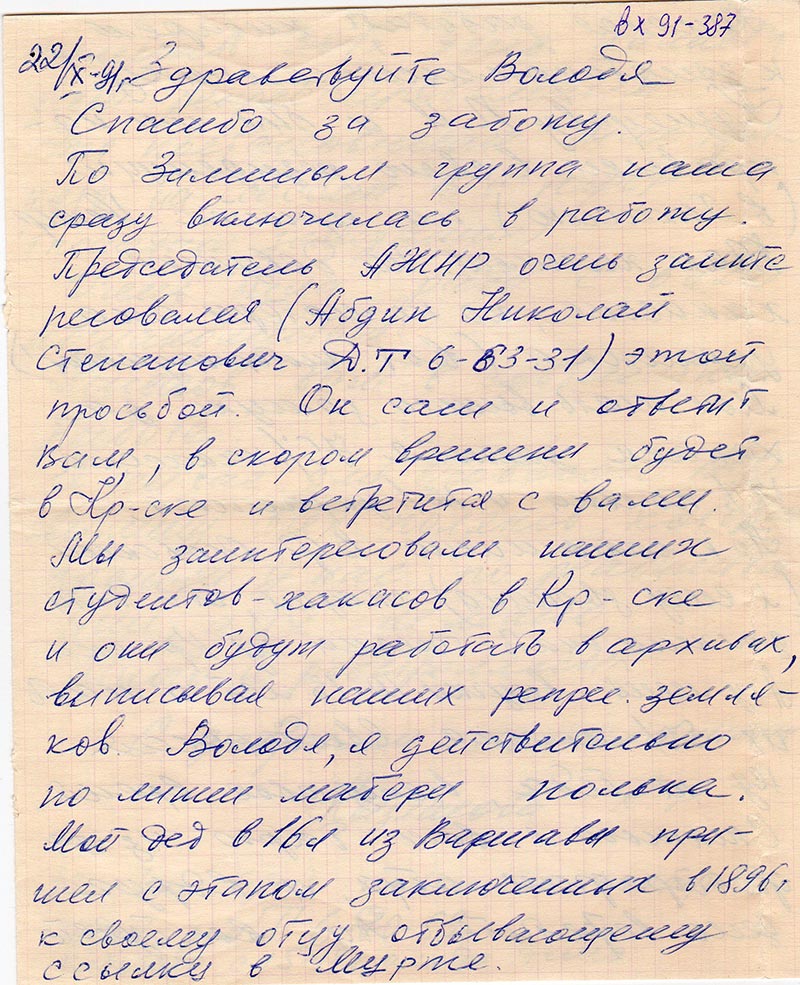 Вх 91-387
22/X-91г. Здравствуйте Володя
Спасибо за заботу.
По Зиминым группа наша
сразу включилась в работу.
Председатель АЖНР очень заинте
ресовался (Абдин Николай
Степанович Д.Т 6-63-31) этой
просьбой. Он сам и ответит
Вам, в скором времени будет
в Кр-ске и встретится с вами.
Мы заинтересовали наших
студентов-хакасов в Кр-ске
и они будут работать в архивах,
выписывая наших репрес. земля-
ков. Володя, я действительно
по линии матери полька.
Мой дед в 16л из Варшавы при-
шел с этапом заключенных в 1896г
к своему отцу отбывающему
ссылку в Мурте.